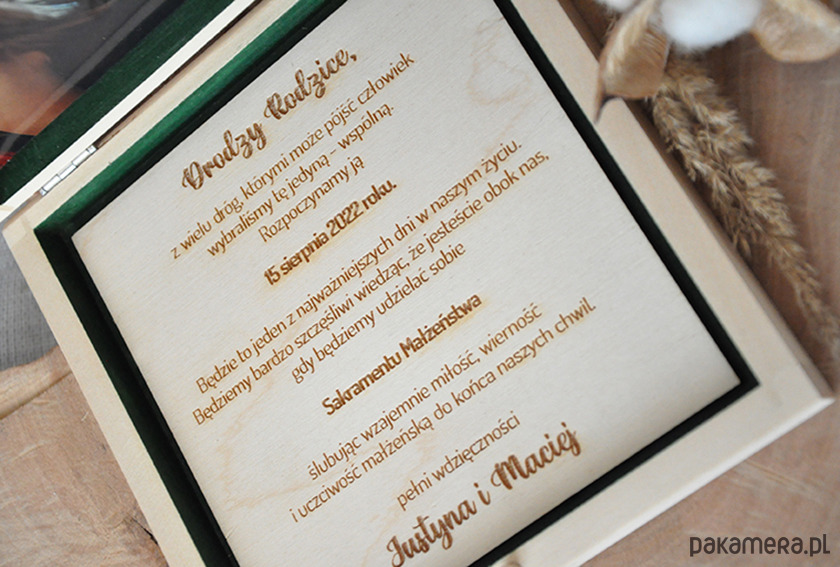 Drodzy Rodzice,
z wielu dróg, którymi może pójść człowiek
wybraliśmy tę jedyną - wspólną.
Rozpoczynamy ją
15 sierpnia 2022 roku.
Będzie to jeden z najważniejszych dni w naszym życiu.
Będziemy bardzo szczęśliwi wiedząc, że jesteście obok nas,
gdy będziemy udzielać sobie
Sakramentu Małżeństwa
ślubując wzajemnie miłość, wierność
i uczciwość małżeńską do końca naszych chwil.
pełni wdzięczności
Justyna i Maciej
pakamera.pl